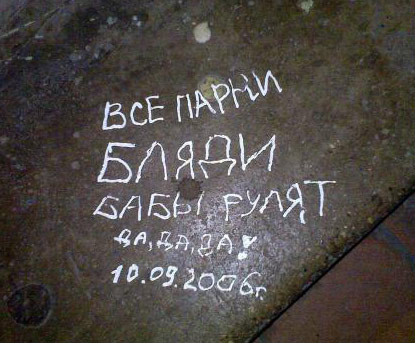 ВСЕ ПАРНИ
БЛЯДИ
БАБЫ РУЛЯТ
ДА, ДА, ДА!
10.09.2006г.